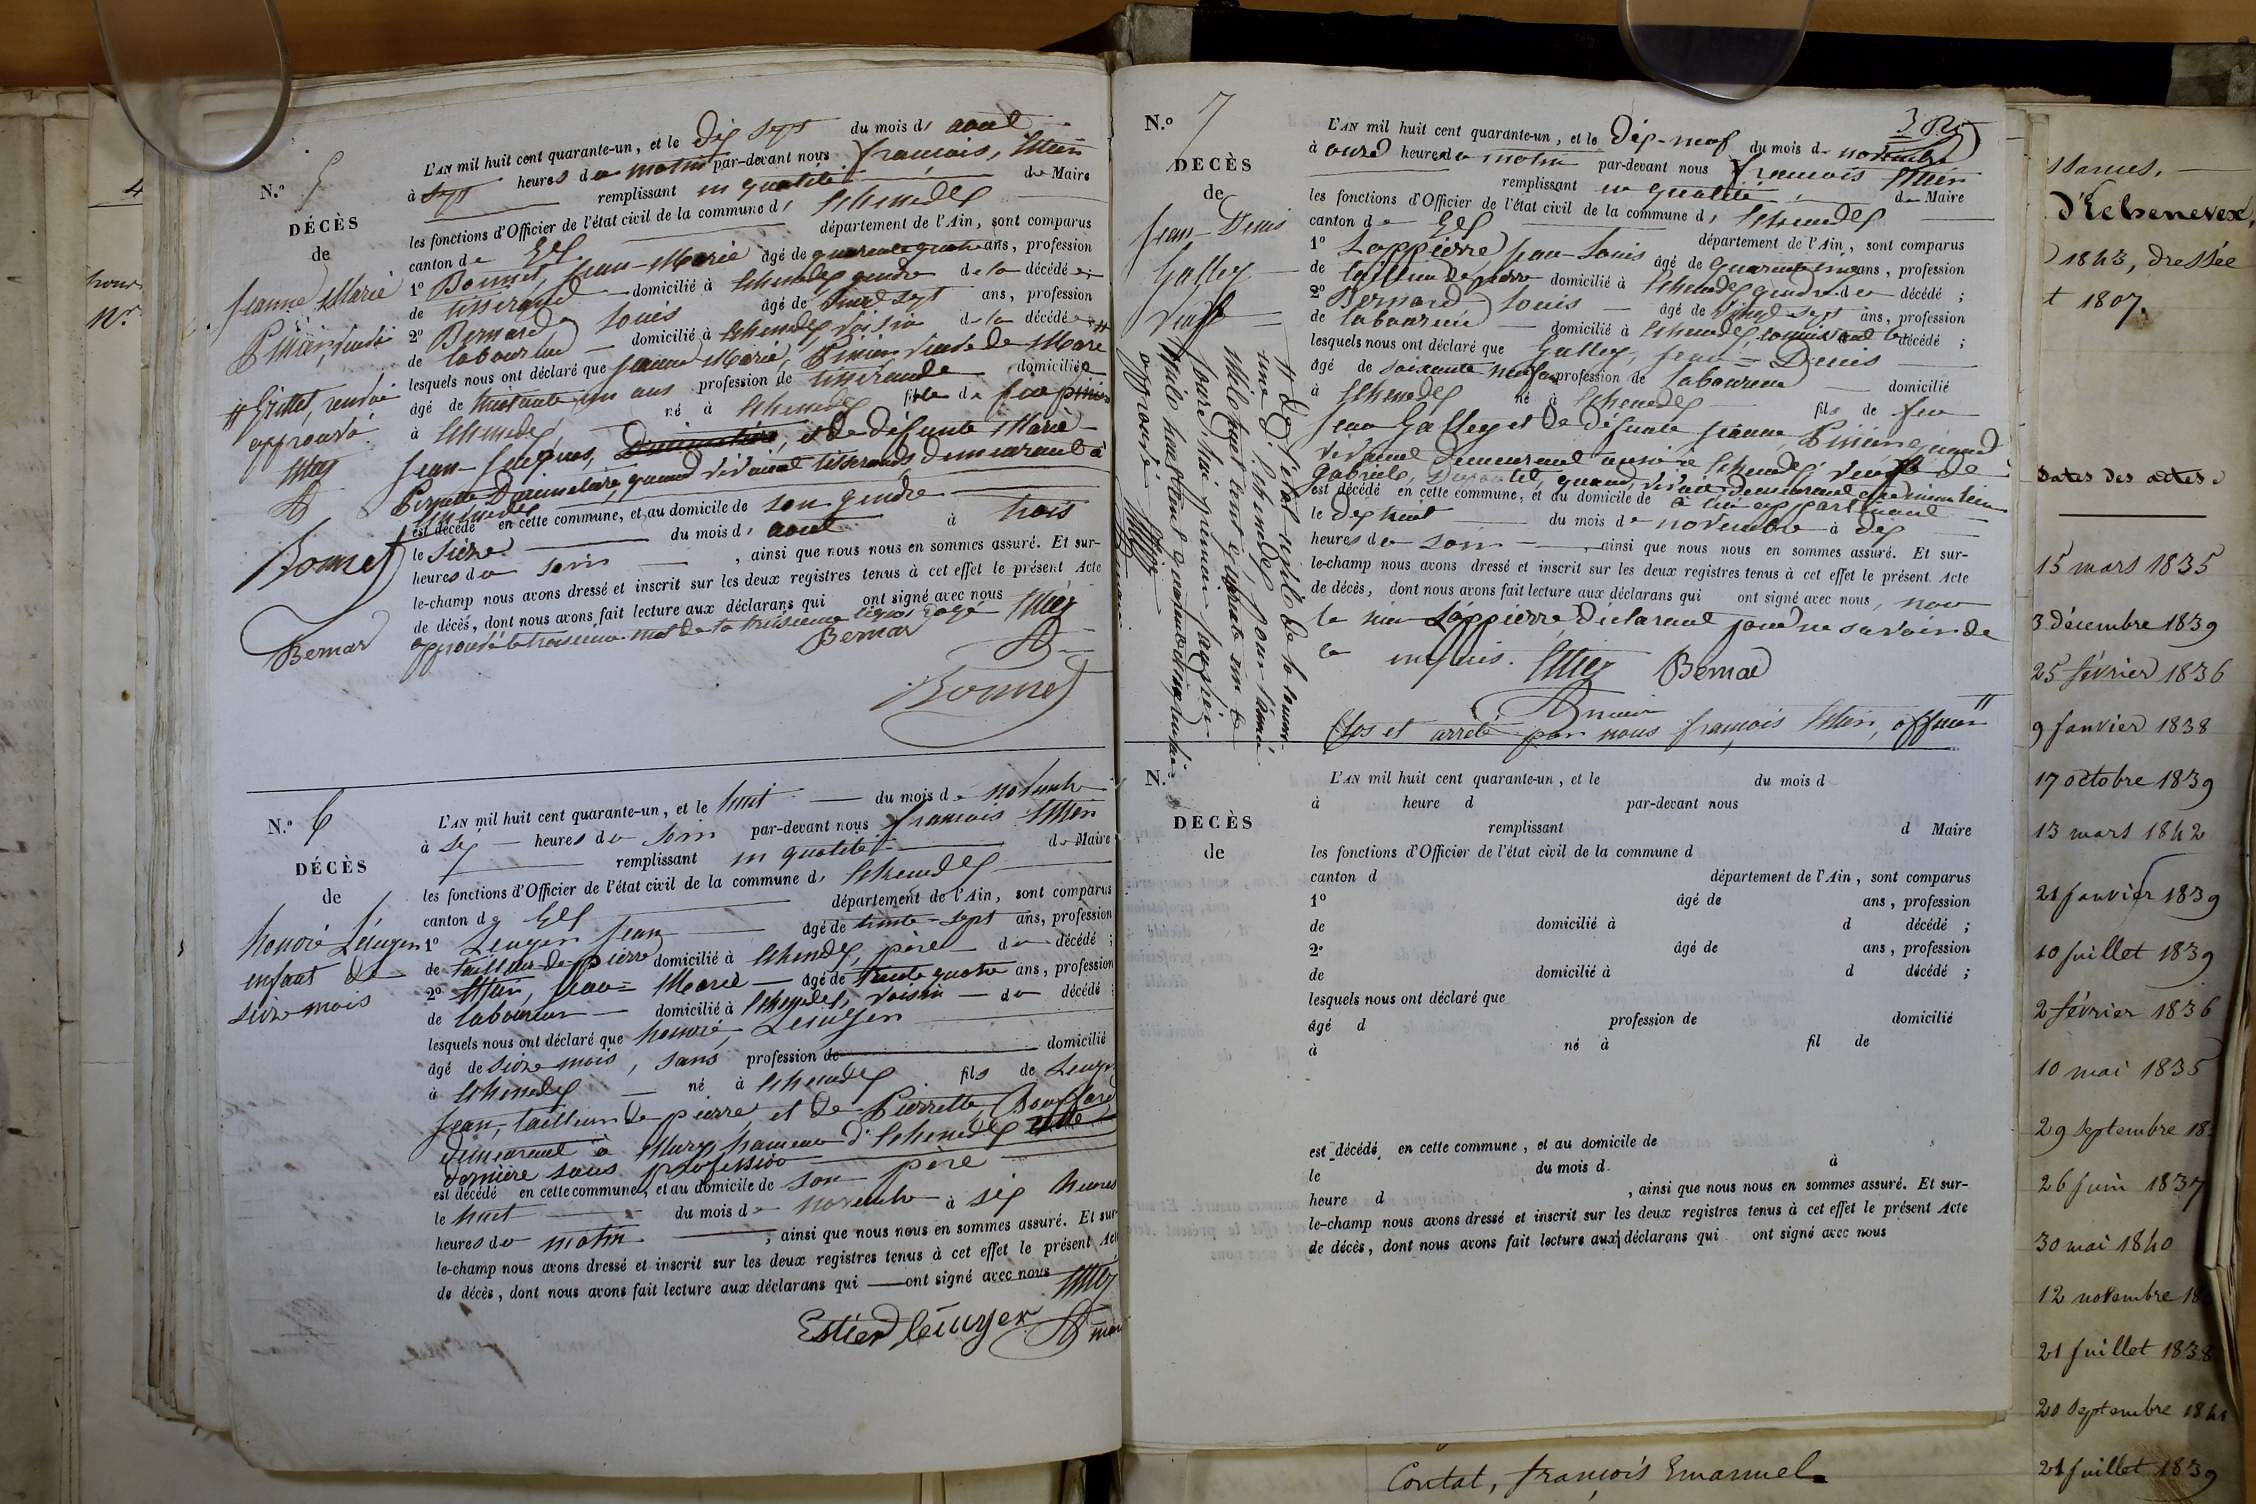 N.o 5
DÉCÈS
de
Jeanne Marie
Pinier, veuve
# Grittet, renvoi
approuvé.
Bonnet
Bernar
L'AN mil huit cent quarante-un, et le Dix sept du mois d' aout
à sept heures du matin par-devant nous françois, Estier
remplissant en qualité de Maire
les fonctions d'Officier de l'état civil de la commune d' Echenevex
canton de Gex département de l'Ain, sont comparus
1o Bonnet, Jean-Marie âgé de quarante quatre ans, profession
de tisserand domicilié à Echenevex gendre de la décédée;
2o Bernard Louis âgé de vingt sept ans, profession
de laboureur domicilié à Echenevex, voisin de la décédée;
lesquels nous ont déclaré que Jeanne Marie, Pinier veuve de Marc #
âgé de ans profession de tisserande domiciliée
à Echenevex, né à Echenevex fille de feu pinier
Jean-Jacques, et de défunte Marie
Pernette quand vivaient tisserands demeurant à
Echenevex
est décédé en cette commune, et au domicile de son gendre
le seize du mois d' aout à trois
heures du soir, ainsi que nous nous en sommes assuré. Et sur-
le-champ nous avons dressé et inscrit sur les deux registres tenus à cet effet le présent Acte
de décès, dont nous avons fait lecture aux déclarans qui ont signé avec nous
approuvé le troisième mot de la treisieme ligne rayé
Bernar
Bonnet
N.o 6
DÉCÈS
de
honoré Lecuyer
enfant de
seize mois
L'AN mil huit cent quarante-un, et le huit du mois de novembre
à six heures du soir par-devant nous françois Estier
remplissant en qualité de Maire
les fonctions d'Officier de l'état civil de la commune d' Echenevex
canton de Gex département de l'Ain, sont comparus
1o Lecuyer Jean âgé de trente-sept ans, profession
de tailleur de pierre domicilié à Echenevex, père du décédé;
2o Estier, Jean=Marie âgé de trente quatre ans, profession
de laboureur domicilié à Echenevex, voisin du décédé;
lesquels nous ont déclaré que honoré, Lecuyer
âgé de seize mois, sans profession de domicilié
à Echenevex né à Echenevex fils de Lecuyer
Jean, tailleur de pierre, et de Pierrette, Bouffard
demeurant à Mury, hameau d'Echenevex
dernière sans profession
est décédé en cette commune, et au domicile de son père
le huit du mois de novembre à six heures
heures du matin, ainsi que nous nous en sommes assuré. Et sur-
le-champ nous avons dressé et inscrit sur les deux registres tenus à cet effet le présent Acte
de décès, dont nous avons fait lecture aux déclarans qui ont signé avec nous
Estier lécuyer maire
N.o 7
DÉCÈS
de
Jean-Denis
Galley
Veuf
L'AN mil huit cent quarante-un, et le Dix-neuf du mois de novembre
à onze heures du matin par-devant nous françois Estier
remplissant en qualité de Maire
les fonctions d'Officier de l'état civil de la commune d' Echenevex
canton de Gex département de l'Ain, sont comparus
1o Lappierre Jean-Louis âgé de quarante cinq ans, profession
de tailleur de pierre domicilié à Echenevex gendre du décédé;
2o Bernard Louis âgé de vingt sept ans, profession
de laboureur domicilié à Echenevex, connaissant le décédé;
lesquels nous ont déclaré que Galley, Jean=Denis
âgé de soixante neuf ans profession de laboureur domicilié
à Echenevex né à Echenevex fils de feu
Jean Galley et de défunte Jeanne, Pinier quand
vivaient demeurant aussi à Echenevex, veuf de
Gabriele, quand vivait demeurant
est décédé en cette commune, et au domicile de à lui appartenant
le dix huit du mois de novembre à dix
heures du soir, ainsi que nous nous en sommes assuré. Et sur-
le-champ nous avons dressé et inscrit sur les deux registres tenus à cet effet le présent Acte
de décès, dont nous avons fait lecture aux déclarans qui ont signé avec nous, non
le sieur Lappierre, déclarant pour ne savoir de
ce enquis. Bernar
maire
Clos et arrêté par nous françois Estier, officier #
# de l'état civil de la commu-
ne d'Echenevex pour l'année
mil huit cent quarante un et
N.
DÉCÈS
de
L'AN mil huit cent quarante-un, et le du mois d
à heure d par-devant nous
remplissant d Maire
les fonctions d'Officier de l'état civil de la commune d
canton d département de l'Ain, sont comparus
1o âgé de ans, profession
de domicilié à d décédé;
2o âgé de ans, profession
de domicilié à d décédé;
lesquels nous ont déclaré que
âgé d profession de domicilié
à né à fil de
est décédé en cette commune, et au domicile de
le du mois d à
heure d , ainsi que nous nous en sommes assuré. Et sur-
le-champ nous avons dressé et inscrit sur les deux registres tenus à cet effet le présent Acte
de décès, dont nous avons fait lecture aux déclarans qui ont signé avec nous
Contat, françois Emanuel
d'Echenevex,
1843, dressée
t 1807.
Dates des actes
15 mars 1835
3 décembre 1839
25 février 1836
9 Janvier 1838
17 octobre 1839
13 mars 1842
21 Janvier 1839
10 Juillet 1839
2 février 1836
10 mai 1835
29 septembre 18
26 Juin 1837
30 mai 1840
12 novembre 18
21 Juillet 1838
20 septembre 1841
21 Juillet 1839